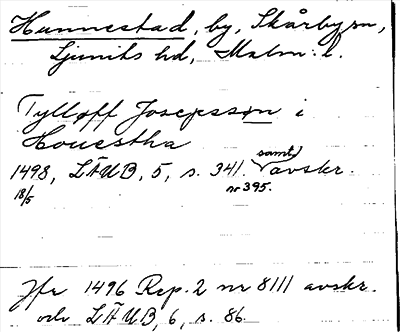 Hunnestad, by, Skårby sn,
Ljunits hd, Malm. l.
Tylløff Josepsson i
Houestha
1498, LÄUB, 5, s. 341. samt avskr.
18/5 nr 395.
Jfr 1496 Rep. 2 nr 8111 avskr.
och LÄUB, 6, s. 86.